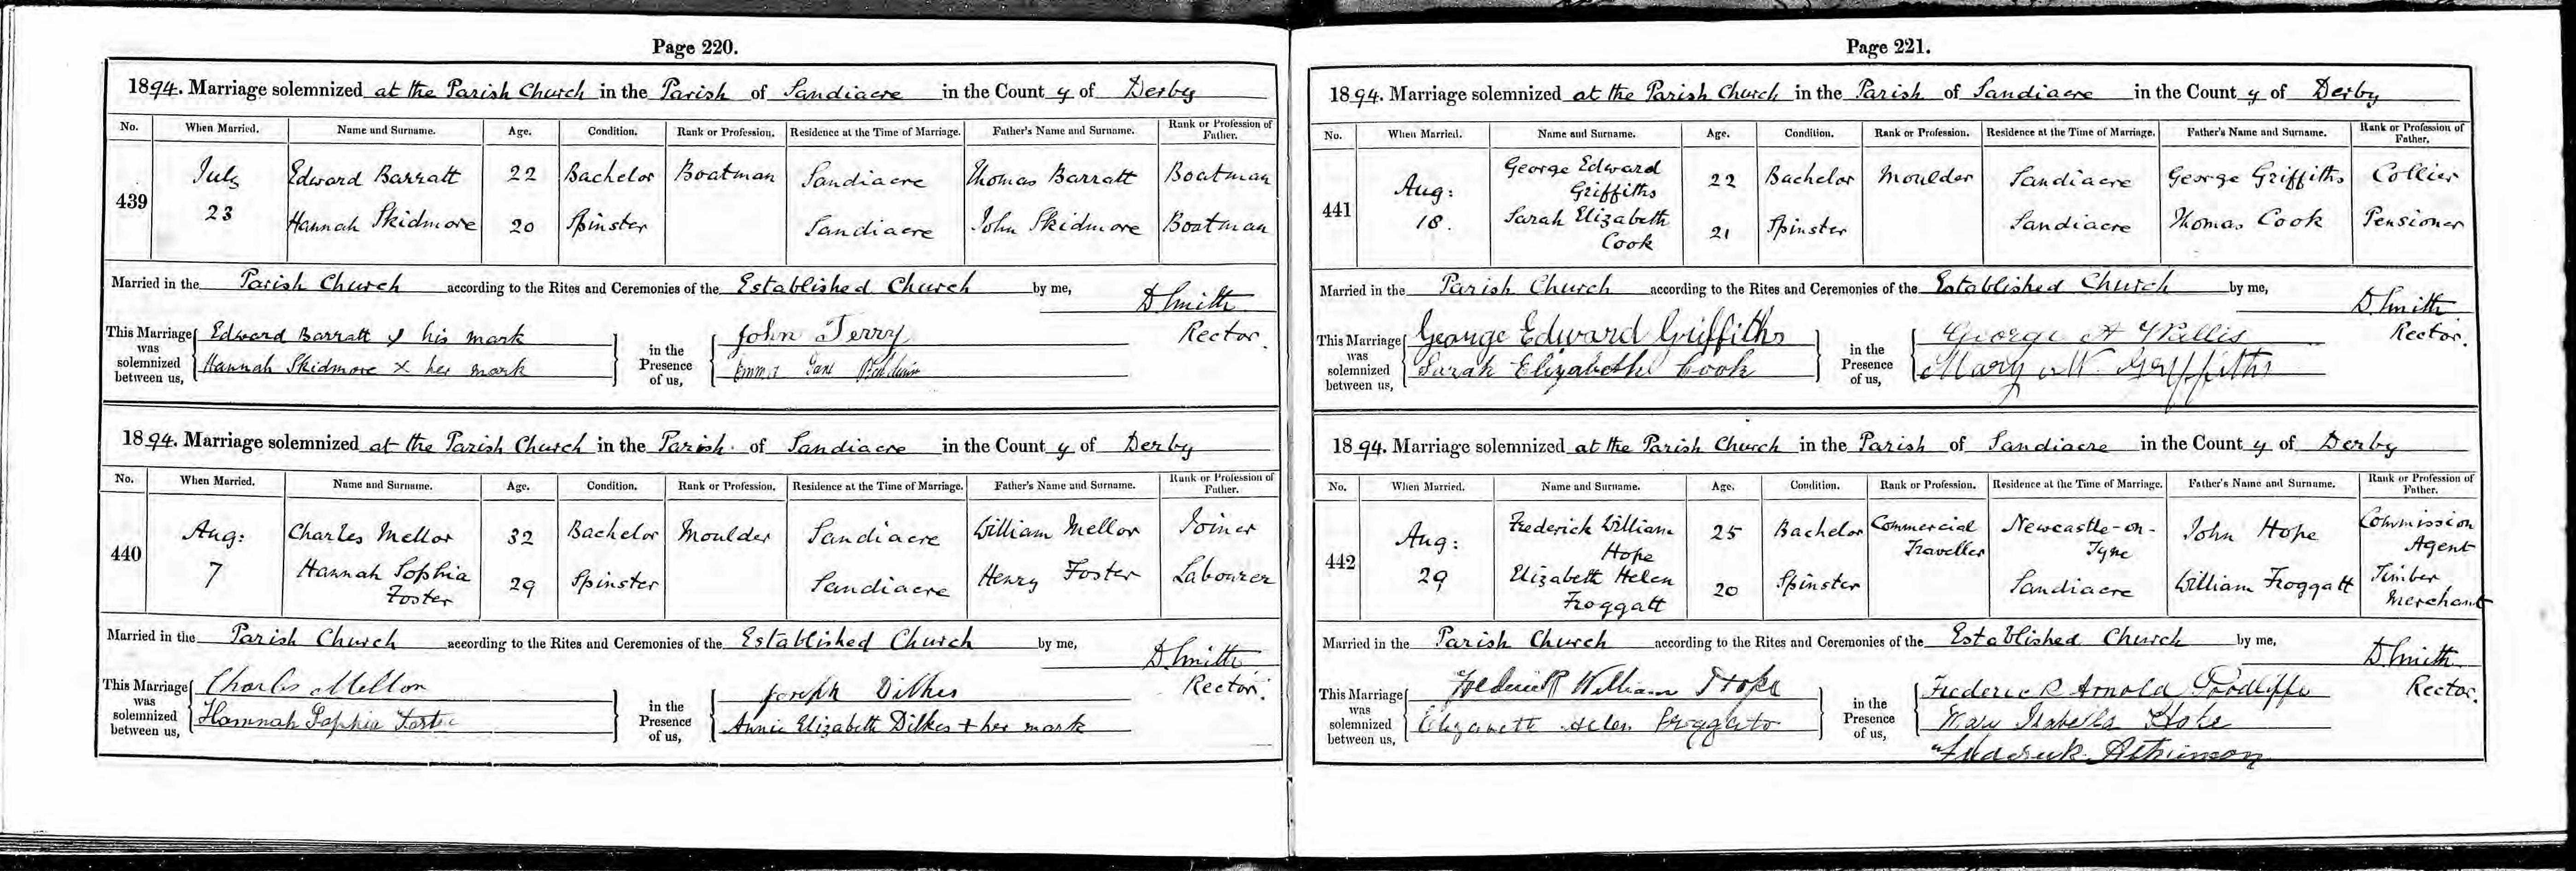 Page 220.
1894. Marriage solemnized at the Parish Church in the Parish of Sandiacre in the County of Derby
No. When Married. Name and Surname. Age. Condition. Rank or Profession. Residence at the Time of Marriage. Father's Name and Surname. Rank or Profession of Father.
439 July 23 Edward Barratt 22 Bachelor Boatman Sandiacre Thomas Barratt Boatman
Hannah Skidmore 20 Spinster Sandiacre John Skidmore Boatman
Married in the Parish Church according to the Rites and Ceremonies of the Established Church by me,
D Smith
Rector.
This Marriage was solemnized between us, Edward Barratt x his mark in the Presence of us, John Terry
Hannah Skidmore x her mark Emma Jane
1894. Marriage solemnized at the Parish Church in the Parish of Sandiacre in the County of Derby
No. When Married. Name and Surname. Age. Condition. Rank or Profession. Residence at the Time of Marriage. Father's Name and Surname. Rank or Profession of Father.
440 Aug: 7 Charles Mellor 32 Bachelor Moulder Sandiacre William Mellor Joiner
Hannah Sophia Foster 29 Spinster Sandiacre Henry Foster Labourer
Married in the Parish Church according to the Rites and Ceremonies of the Established Church by me,
D Smith
Rector.
This Marriage was solemnized between us, Charles Mellor in the Presence of us, Joseph Dilkes
Hannah Sophia Foster Annie Elizabeth Dilkes + her mark
Page 221.
1894. Marriage solemnized at the Parish Church in the Parish of Sandiacre in the County of Derby
No. When Married. Name and Surname. Age. Condition. Rank or Profession. Residence at the Time of Marriage. Father's Name and Surname. Rank or Profession of Father.
441 Aug: 18. George Edward Griffiths 22 Bachelor Moulder Sandiacre George Griffiths Collier
Sarah Elizabeth Cook 21 Spinster Sandiacre Thomas Cook Pensioner
Married in the Parish Church according to the Rites and Ceremonies of the Established Church by me,
D Smith
Rector.
This Marriage was solemnized between us, George Edward Griffiths in the Presence of us, George A Wallis
Sarah Elizabeth Cook Mary W. Griffiths
1894. Marriage solemnized at the Parish Church in the Parish of Sandiacre in the County of Derby
No. When Married. Name and Surname. Age. Condition. Rank or Profession. Residence at the Time of Marriage. Father's Name and Surname. Rank or Profession of Father.
442 Aug: 29 Frederick William Hope 25 Bachelor Commercial Traveller Newcastle-on-Tyne John Hope Commission Agent
Elizabeth Helen Froggatt 20 Spinster Sandiacre William Froggatt Timber Merchant
Married in the Parish Church according to the Rites and Ceremonies of the Established Church by me,
D Smith
Rector.
This Marriage was solemnized between us, Frederick William Hope in the Presence of us, Frederick Arnold
Elizabeth Helen Froggatt Mary Isabella Hope
Frederick Atkinson